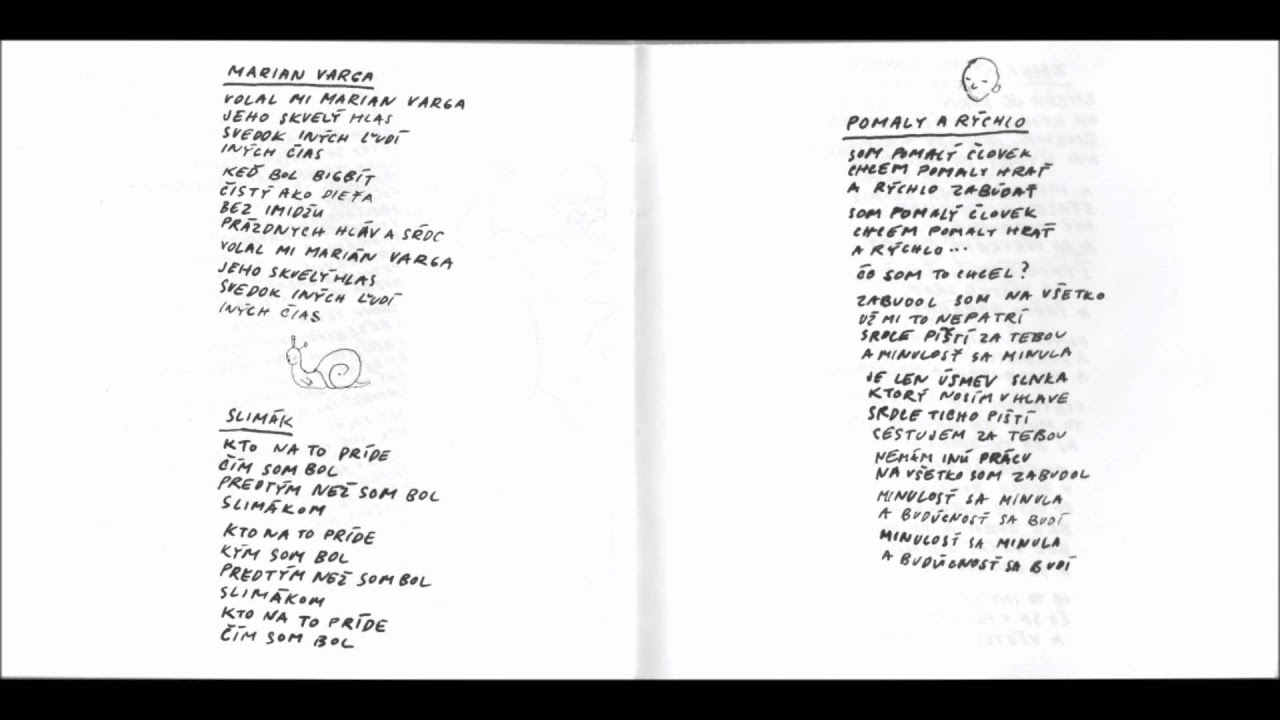 MARIAN VARGA
VOLAL MI MARIAN VARGA
JEHO SKVELÝ HLAS
SVEDOK INÝCH ĽUDÍ
INÝCH ČIAS
KEĎ BOL BIGBÍT
ČISTÝ AKO DIEŤA
BEZ IMIDŽU
PRÁZDNYCH HLÁV A SŔDC
VOLAL MI MARIÁN VARGA
JEHO SKVELÝ HLAS
SVEDOK INÝCH ĽUDÍ
INÝCH ČIAS
SLIMÁK
KTO NA TO PRÍDE
ČÍM SOM BOL
PREDTÝM NEŽ SOM BOL
SLIMÁKOM
KTO NA TO PRÍDE
KÝM SOM BOL
PREDTÝM NEŽ SOM BOL
SLIMÁKOM
KTO NA TO PRÍDE
ČÍM SOM BOL
POMALY A RÝCHLO
SOM POMALÝ ČLOVEK
CHCEM POMALY HRAŤ
A RÝCHLO ZABÚDAŤ
SOM POMALÝ ČLOVEK
CHCEM POMALY HRAŤ
A RÝCHLO...
ČO SOM TO CHCEL?
ZABUDOL SOM NA VŠETKO
UŽ MI TO NEPATRÍ
SRDCE PIŠTÍ ZA TEBOU
A MINULOSŤ SA MINULA
JE LEN ÚSMEV SLNKA
KTORÝ NOSÍM V HLAVE
SRDCE TICHO PIŠTÍ
CESTUJEM ZA TEBOU
NEMÁM INÚ PRÁCU
NA VŠETKO SOM ZABUDOL
MINULOSŤ SA MINULA
A BUDÚCNOSŤ SA BUDÍ
MINULOSŤ SA MINULA
A BUDÚCNOSŤ SA BUDÍ